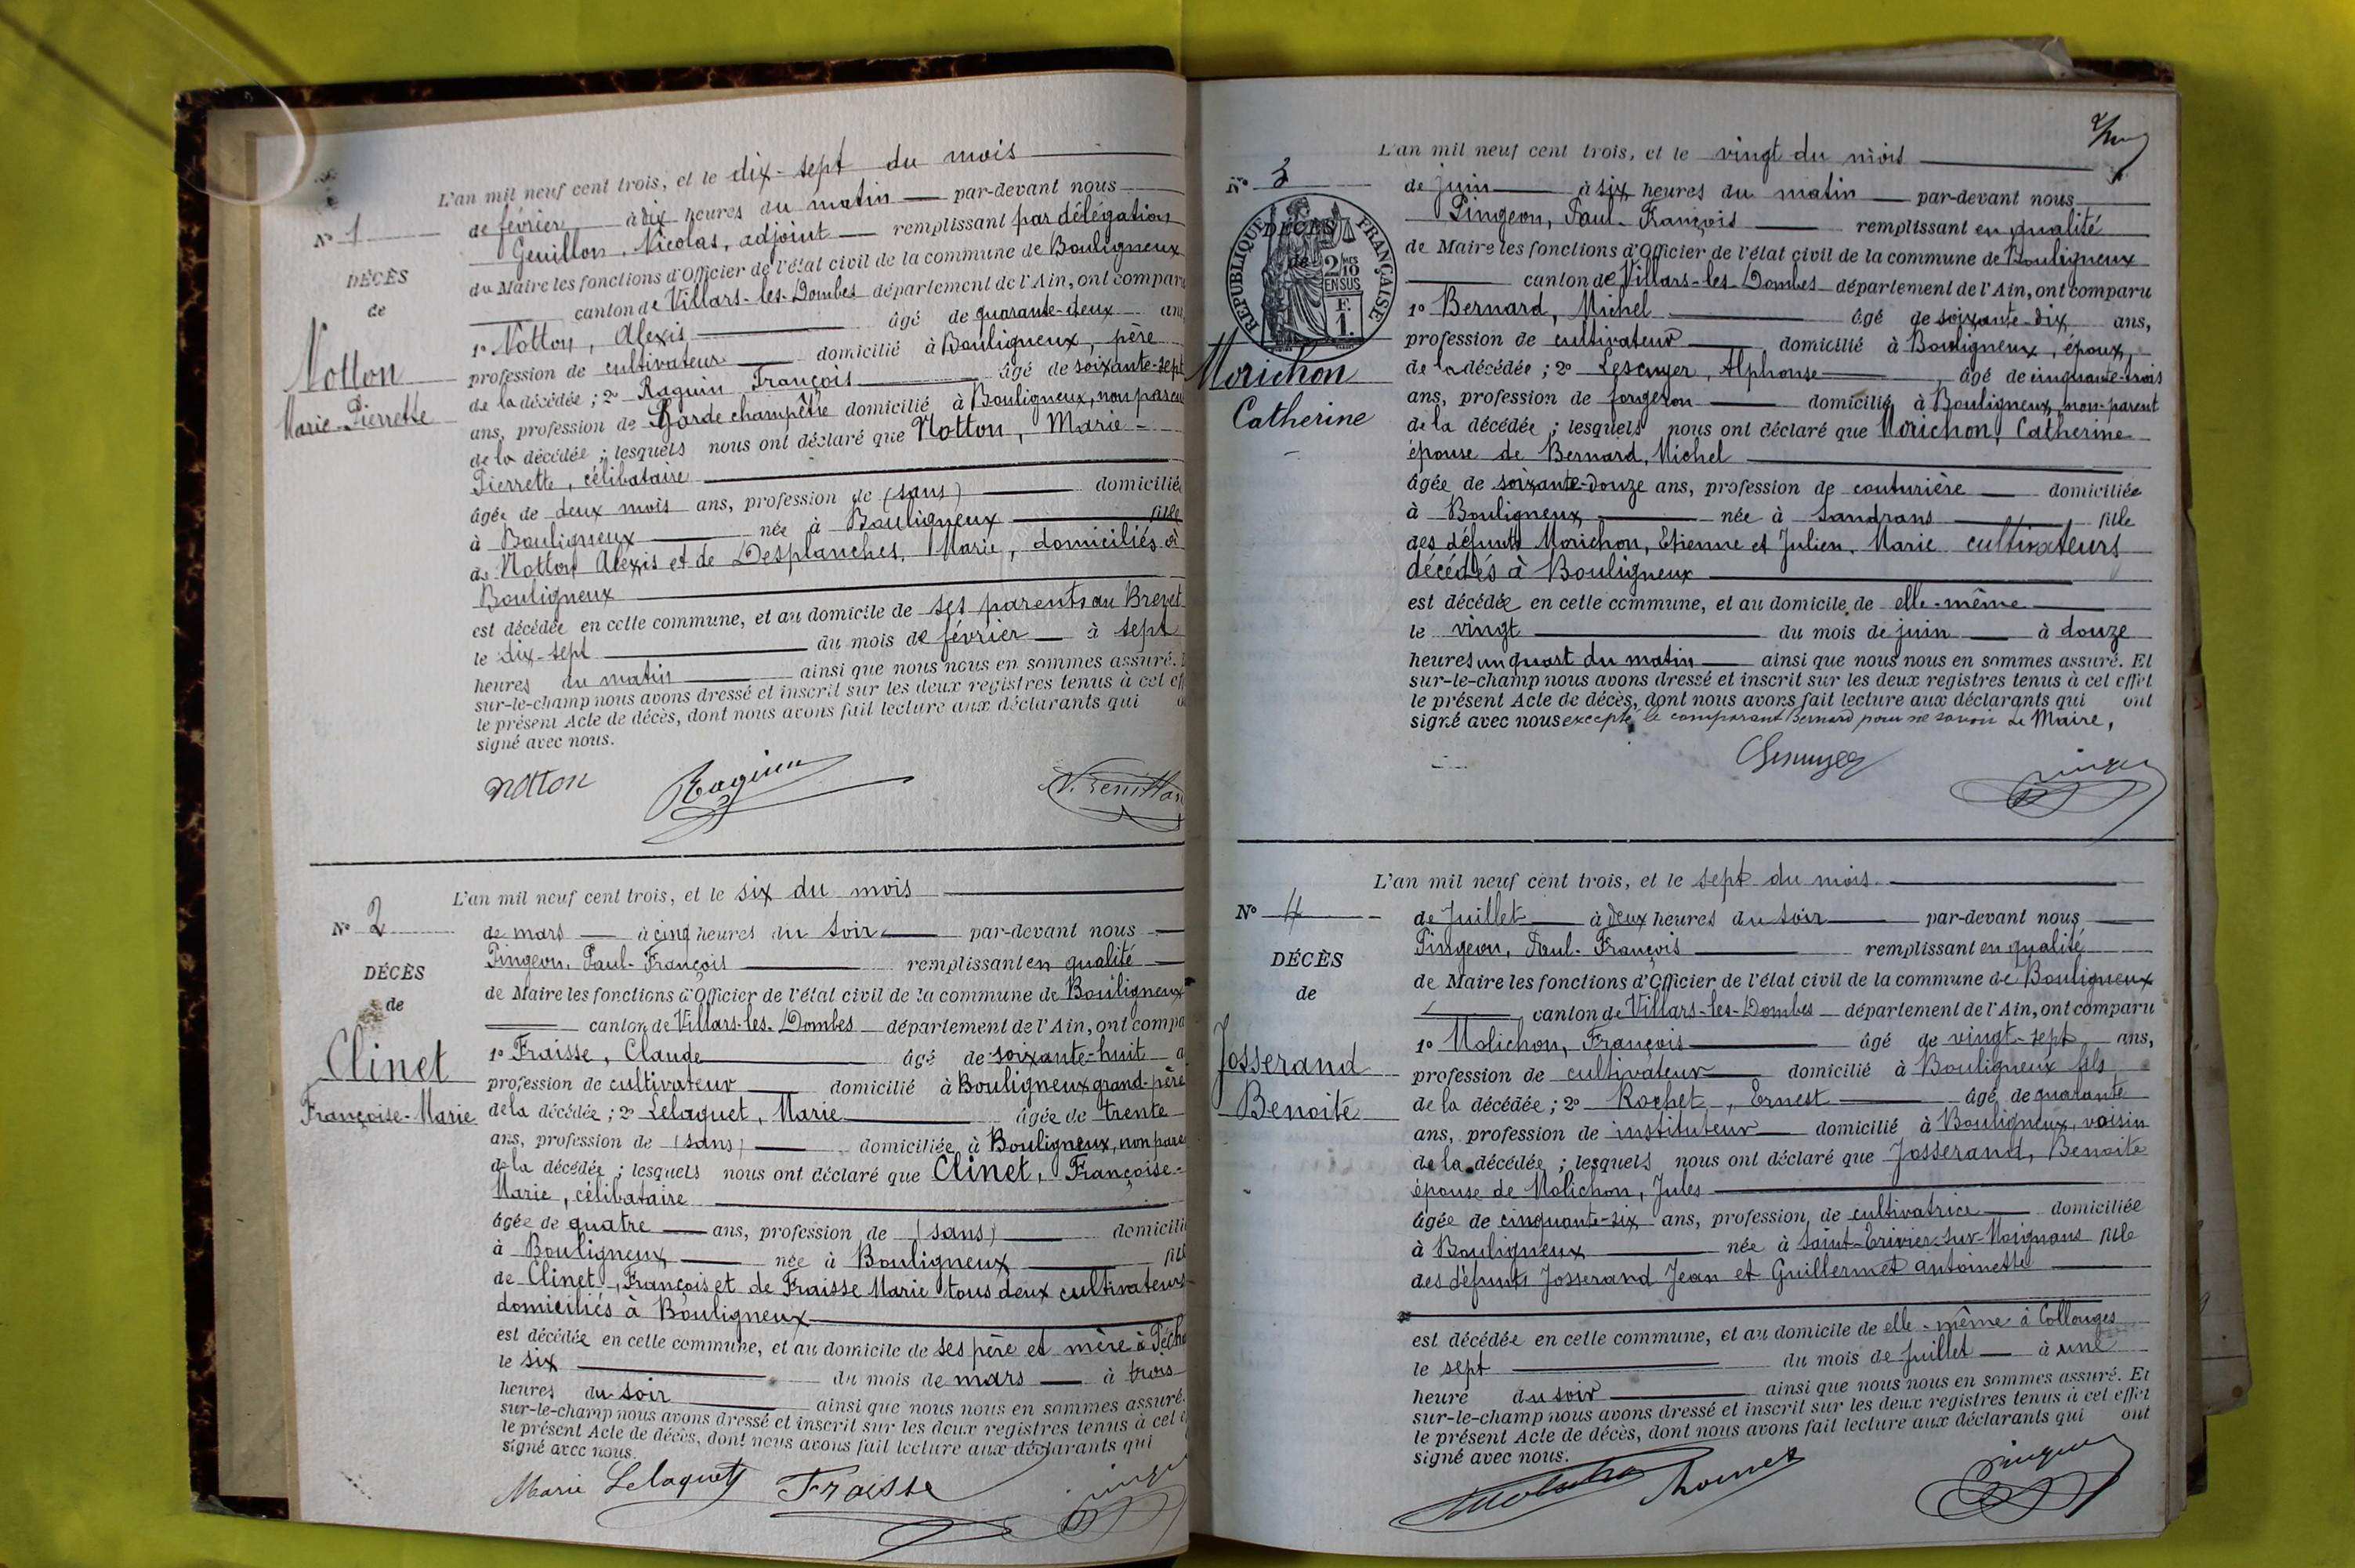 L'an mil neuf cent trois, et le dix-sept du mois
N° 1
de février à dix heures du matin par-devant nous
Genillon, Nicolas, adjoint remplissant par délégation
du Maire les fonctions d'Officier de l'état civil de la commune de Bouligneux
DÉCÈS
de
canton de Villars-les-Dombes département de l'Ain, ont compar
1° Notton, Alexis âgé de quarante-deux an
profession de cultivateur domicilié à Bouligneux, père
Notton
Marie-Pierrette
de la décédée ; 2° Raguin François âgé de soixante-sept
ans, profession de Garde champêtre domicilié à Bouligneux, non paren
de la décédée ; lesquels nous ont déclaré que Notton, Marie-
Pierrette, célibataire
âgée de deux mois ans, profession de (sans) domiciliée
à Bouligneux née à Bouligneux fille
de Notton Alexis et de Desplanches, Marie, domiciliés à
Bouligneux
est décédée en cette commune, et au domicile de ses parents au Brevet
le dix-sept du mois de février à sept
heures du matin ainsi que nous nous en sommes assuré.
sur-le-champ nous avons dressé et inscrit sur les deux registres tenus à cet eff
le présent Acte de décès, dont nous avons fait lecture aux déclarants qui o
signé avec nous.
Notton Raguin N. Genillon
L'an mil neuf cent trois, et le six du mois
N° 2
de mars à cinq heures du soir par-devant nous
Pingeon, Paul-François remplissant en qualité
DÉCÈS
de
de Maire les fonctions d'Officier de l'état civil de la commune de Bouligneux
canton de Villars-les-Dombes département de l'Ain, ont compa
Clinet
Françoise-Marie
1° Fraisse, Claude âgé de soixante-huit a
profession de cultivateur domicilié à Bouligneux grand-père
de la décédée ; 2° Lelaquet, Marie âgée de trente
ans, profession de (sans) domiciliée à Bouligneux, non pare
de la décédée ; lesquels nous ont déclaré que Clinet, Françoise-
Marie, célibataire
âgée de quatre ans, profession de (sans) domicili
à Bouligneux née à Bouligneux fill
de Clinet, François et de Fraisse Marie tous deux cultivateurs
domiciliés à Bouligneux
est décédée en cette commune, et au domicile de ses père et mère à
le six du mois de mars à trois
heures du soir ainsi que nous nous en sommes assuré.
sur-le-champ nous avons dressé et inscrit sur les deux registres tenus à cet e
le présent Acte de décès, dont nous avons fait lecture aux déclarants qui
signé avec nous.
Marie Lelaquet Fraisse
L'an mil neuf cent trois, et le vingt du mois
N° 3
de juin à six heures du matin par-devant nous
Pingeon, Paul-François remplissant en qualité
RÉPUBLIQUE FRANÇAISE
2/10 EN SUS
F. 1.
DÉCÈS
de
de Maire les fonctions d'Officier de l'état civil de la commune de Bouligneux
canton de Villars-les-Dombes département de l'Ain, ont comparu
1° Bernard, Michel âgé de soixante-dix ans,
profession de cultivateur domicilié à Bouligneux, époux,
Morichon
Catherine
de la décédée ; 2° Lescuyer, Alphonse âgé de cinquante-trois
ans, profession de forgeron domicilié à Bouligneux, non-parent
de la décédée ; lesquels nous ont déclaré que Morichon, Catherine
épouse de Bernard, Michel
âgée de soixante-douze ans, profession de couturière domiciliée
à Bouligneux née à Sandrans fille
des défunts Morichon, Etienne et Julien, Marie cultivateurs
décédés à Bouligneux
est décédée en cette commune, et au domicile de elle-même
le vingt du mois de juin à douze
heures un quart du matin ainsi que nous nous en sommes assuré. Et
sur-le-champ nous avons dressé et inscrit sur les deux registres tenus à cet effet
le présent Acte de décès, dont nous avons fait lecture aux déclarants qui ont
signé avec nous excepté le comparant Bernard pour ne savoir Le Maire,
L'an mil neuf cent trois, et le sept du mois
N° 4
de Juillet à deux heures du soir par-devant nous
Pingeon, Paul-François remplissant en qualité
DÉCÈS
de
de Maire les fonctions d'Officier de l'état civil de la commune de Bouligneux
canton de Villars-les-Dombes département de l'Ain, ont comparu
Josserand
Benoite
1° Molichon, François âgé de vingt-sept ans,
profession de cultivateur domicilié à Bouligneux fils
de la décédée ; 2° Rochet, Ernest âgé de quarante
ans, profession de instituteur domicilié à Bouligneux, voisin
de la décédée ; lesquels nous ont déclaré que Josserand, Benoite
épouse de Molichon, Jules
âgée de cinquante-six ans, profession de cultivatrice domiciliée
à Bouligneux née à Saint-Trivier-sur-Moignans fille
des défunts Josserand Jean et Guillermet antoinette
est décédée en cette commune, et au domicile de elle-même à Collonges
le sept du mois de Juillet à une
heure du soir ainsi que nous nous en sommes assuré. Et
sur-le-champ nous avons dressé et inscrit sur les deux registres tenus à cet effet
le présent Acte de décès, dont nous avons fait lecture aux déclarants qui ont
signé avec nous.